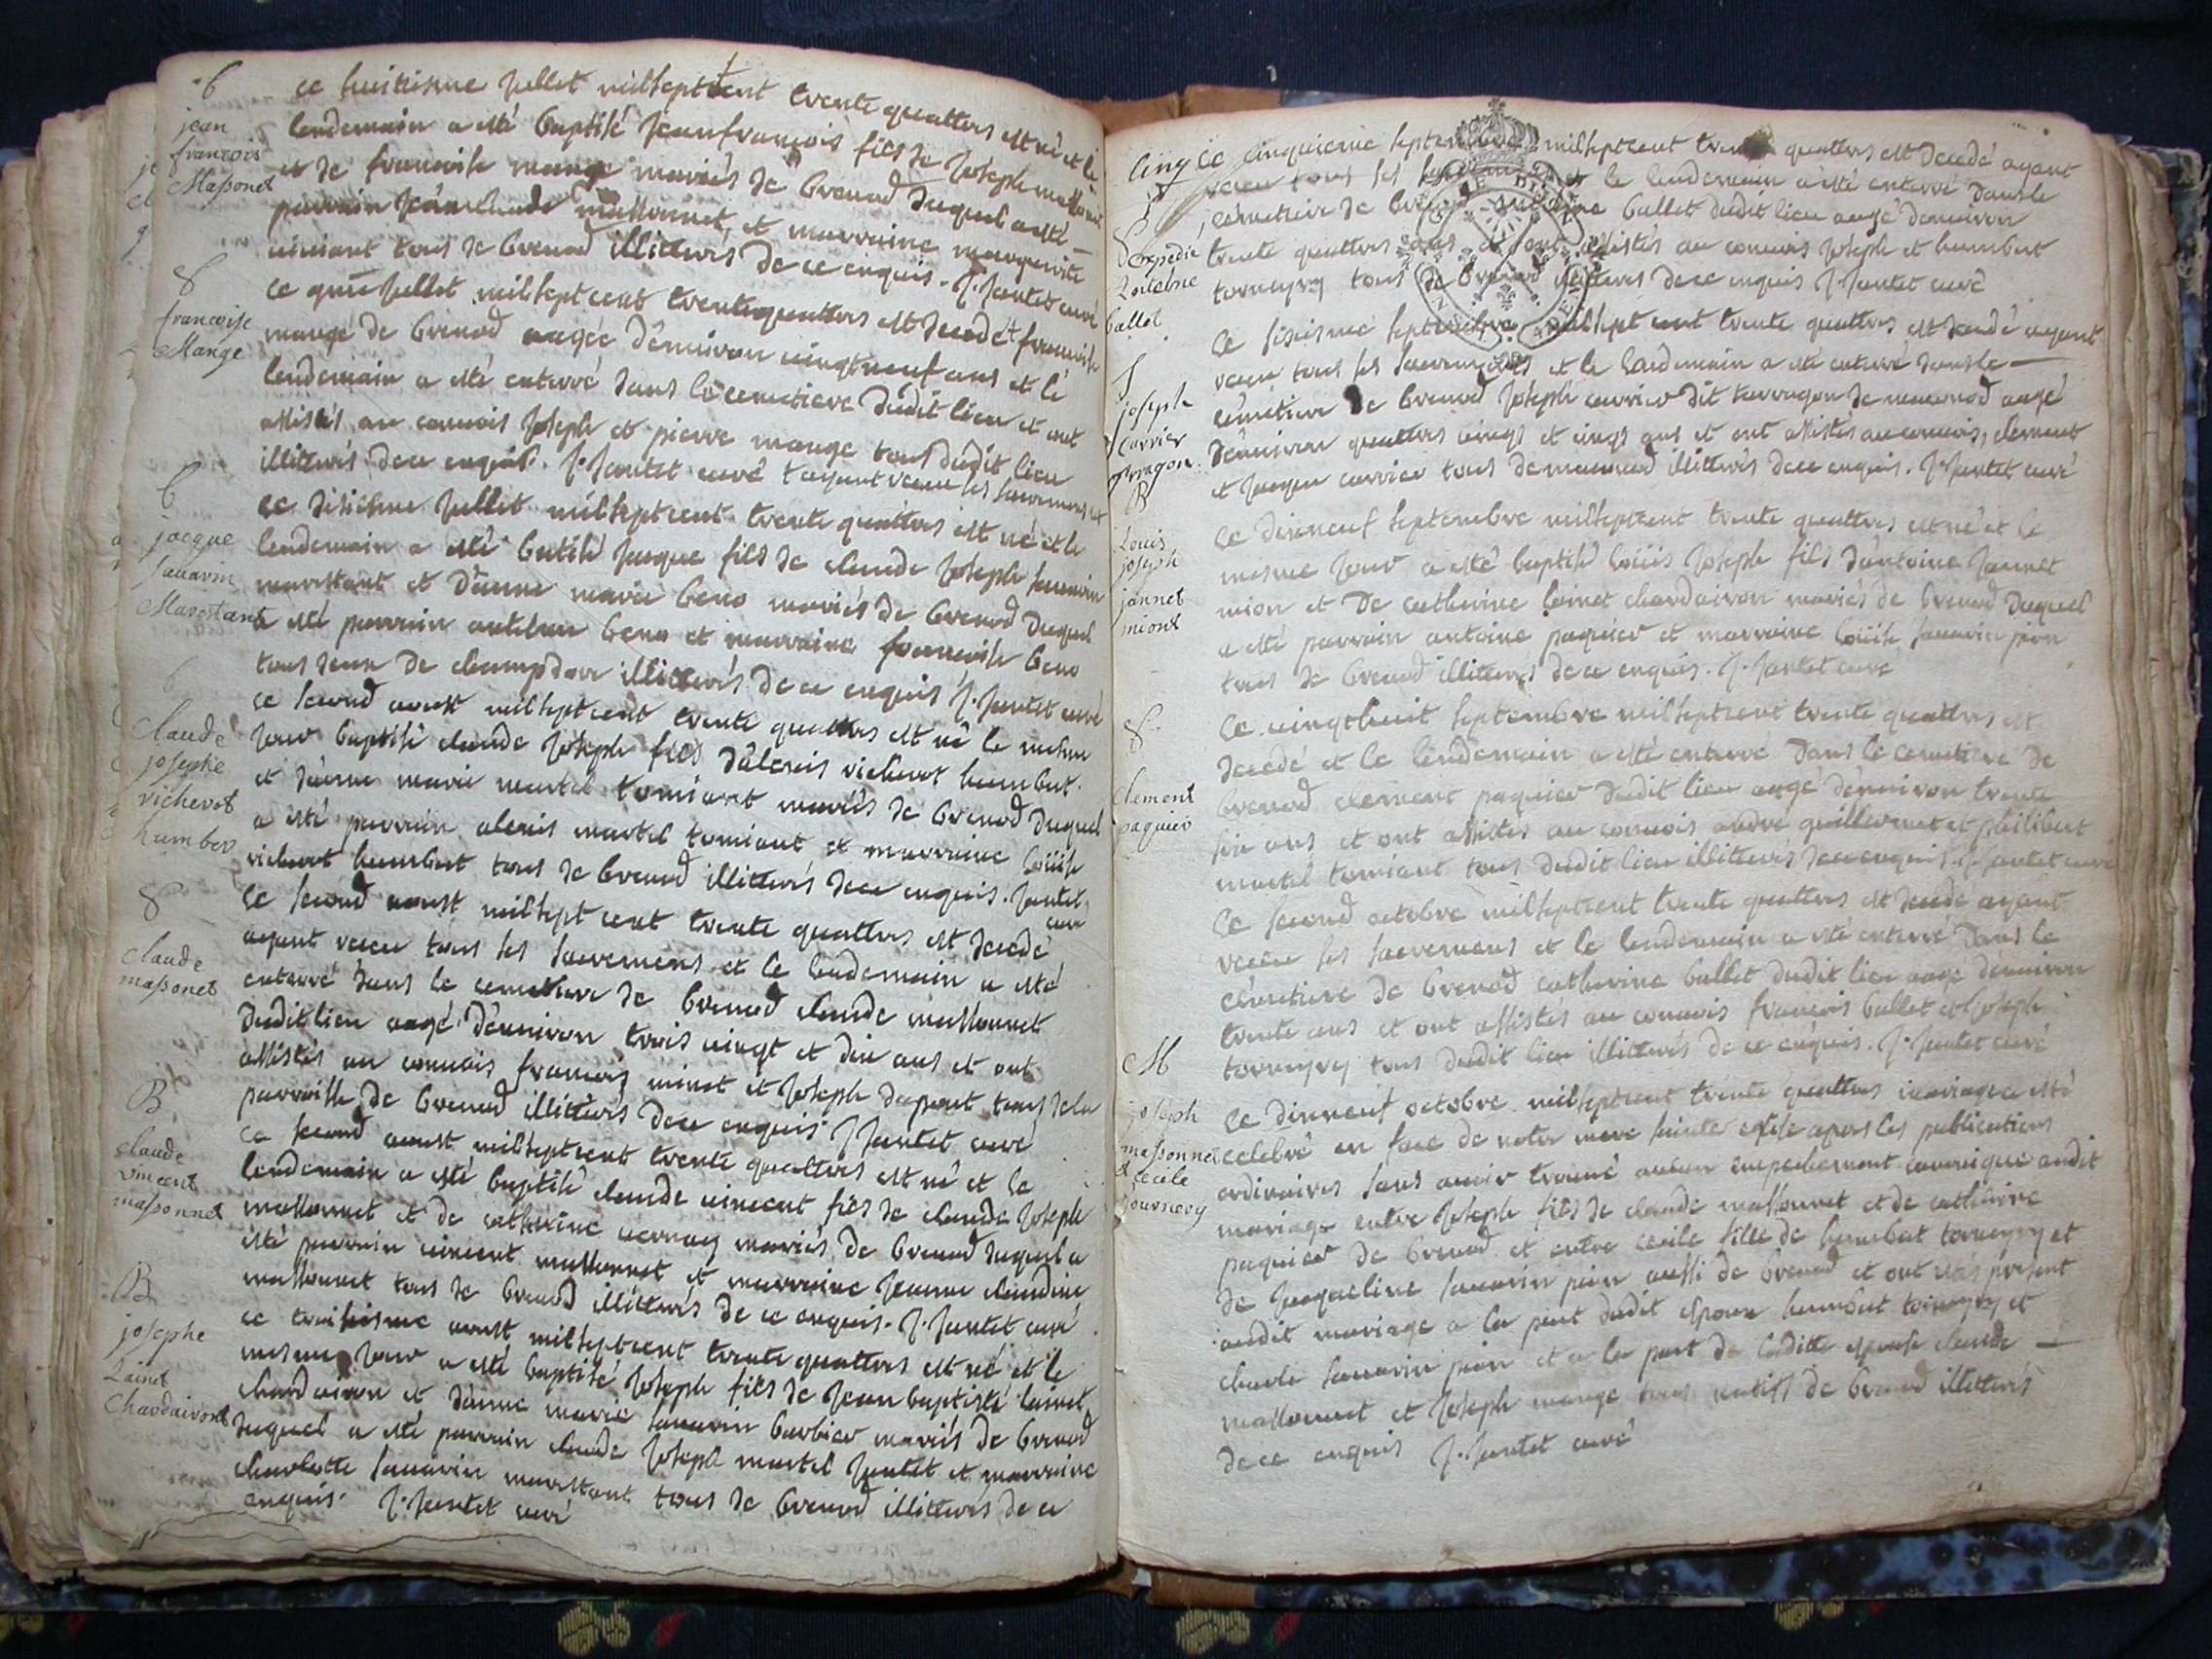 6
jean
francois
Massonet
ce huitiesme Jullet milseptcent trente quattres est né et le
lendemain a esté baptisé Jeanfrancois fils de Joseph massonnet
et de francoise mange mariés de brenod duquel a esté
parrain Jean claude massonnet, et marraine marguerite
vincant tous de brenod illitterés de ce enquis. J. Jantet curé
8
francoise
Mange
ce Jullet milseptcent trentequattres est decedé francoise
mange de brenod augée d'environ vingtneuf ans et le
lendemain a esté enterré dans le cemetiere dudit lieu et ont
assistés au convois Joseph et pierre mange tous dudit lieu
illitterés dece enquis. J. Jantet curé + ayant receu ses sacremens et
6
jacque
sauarin
Marestant
ce sisiesme Jullet milseptcent trente quattres est né et le
lendemain a esté batisé Jacque fils de claude Joseph sauarin
marestant et d'anne marie beno mariés de brenod duquel
a esté parrain antelme beno et marraine francoise beno
tous deux de champdor illitterés de ce enquis J. Jantet curé
6
claude
josephe
richerot
humber
ce second aoust milseptcent trente quattres est né le mesme
Jour baptisé claude Joseph fils d'alexis richerot humbert
et d'anne marie martel tomiant mariés de brenod duquel
a esté parrain alexis martel tomiant et marraine loüise
richerot humbert tous de brenod illitterés dece enquis. Jantet
curé
8
claude
massonet
ce second aoust milsept cent trente quattres est decedé
ayant receu tous ses sacremens et le lendemain a esté
enterré dans le cemetiere de brenod claude massonnet
dudit lieu augé d'environ trois vingt et dix ans et ont
assistés au convois francois minet et Joseph dupont tous dela
parroisse de brenod illitterés dece enquis J Jantet curé
B
claude
vincent
massonnet
ce second aoust milseptcent trente quattres est né et le
lendemain a esté baptisé claude vincent fils de claude Joseph
massonnet et de catherine mariés de brenod duquel a
esté parrain vincent massonnet et marraine Jeanne claudine
massonnet tous de brenod illitterés de ce enquis. J. Jantet curé
B
josephe
Lainet
Chardaivont
ce troisiesme aoust milseptcent trente quattres est né et le
mesme Jour a esté baptisé Joseph fils de Jean baptiste lainet
chardaivon et d'anne marie sauarin barbier mariés de brenod
duquel a esté parrain claude Joseph martel Jantet et marraine
charlotte sauarin marestant tous de brenod illitterés de ce
enquis. J. Jantet curé
cinq ce cinquiesme septembre milseptcent trente quattres est decedé ayant
receu tous ses sacremens et le lendemain a esté enterré dansle
cemetiere de brenod ballet dudit lieu augé denviron
trente quattres ans et ont assistés au convois Joseph et humbert
torneyry tous de brenod illitterés dece enquis J Jantet curé
expedié
ballet
J
joseph
carrier
ce sixiesme septembre milsept cent trente quattres est decedé ayant
receu tous ses sacremens et le landemain a esté enterré dansle
cemetiere de brenod Joseph carrier dit tarragon de macconod augé
d'environ quattres vingt et cinq ans et ont assistés au convois, clement
et Jacque carrier tous de macconod illitterés dece enquis. J. Jantet curé
B
Louis
joseph
jannet
miont
ce dixneuf septembre milseptcent trente quattres est né et le
mesme Jour a esté baptisé loüis Joseph fils d'antoine Jannet
mion et De catherine lainet chardaivon mariés de brenod duquel
a esté parrain antoine paquier et marraine loüise sauarin pion
tous de brenod illitterés de ce enquis. J. Jantet curé
8
clement
paquier
ce vingthuit septembre milseptcent trente quattres est
decedé et le lendemain a esté enterré dans le cemetiere de
brenod clement paquier dudit lieu augé d'environ trente
six ans et ont assistés au convois andré guillermet et philibert
martel tomiant tous dudit lieu illitterés dece enquis. J. Jantet curé
ce second octobre milseptcent trente quattres est decedé ayant
receu ses sacremens et le lendemain a esté enterré dans le
cemetiere de brenod catherine ballet dudit lieu augé d'environ
trente ans et ont assistés au convois francois ballet et Joseph
torneyry tous dudit lieu illitterés de ce enquis. J. Jantet curé
M
joseph
massonnet
& cecile
tournery
ce dixneuf octobre milseptcent trente quattres mariage a esté
celebré en face de notre mere sainte eglise apres les publications
ordinaires sans avoir trouvé aucun empechement canonique audit
mariage entre Joseph fils de claude massonnet et de catherine
paquier de brenod et entre cecile fille de humbert torneyry et
de Jacqueline sauarin pion aussi de brenod et ont present
audit mariage a la part dudit espoux humbert torneyry et
charle sauarin pion et a la part de laditte espouse claude
massonnet et Joseph mange tous natifs de brenod illitterés
dece enquis J. Jantet curé